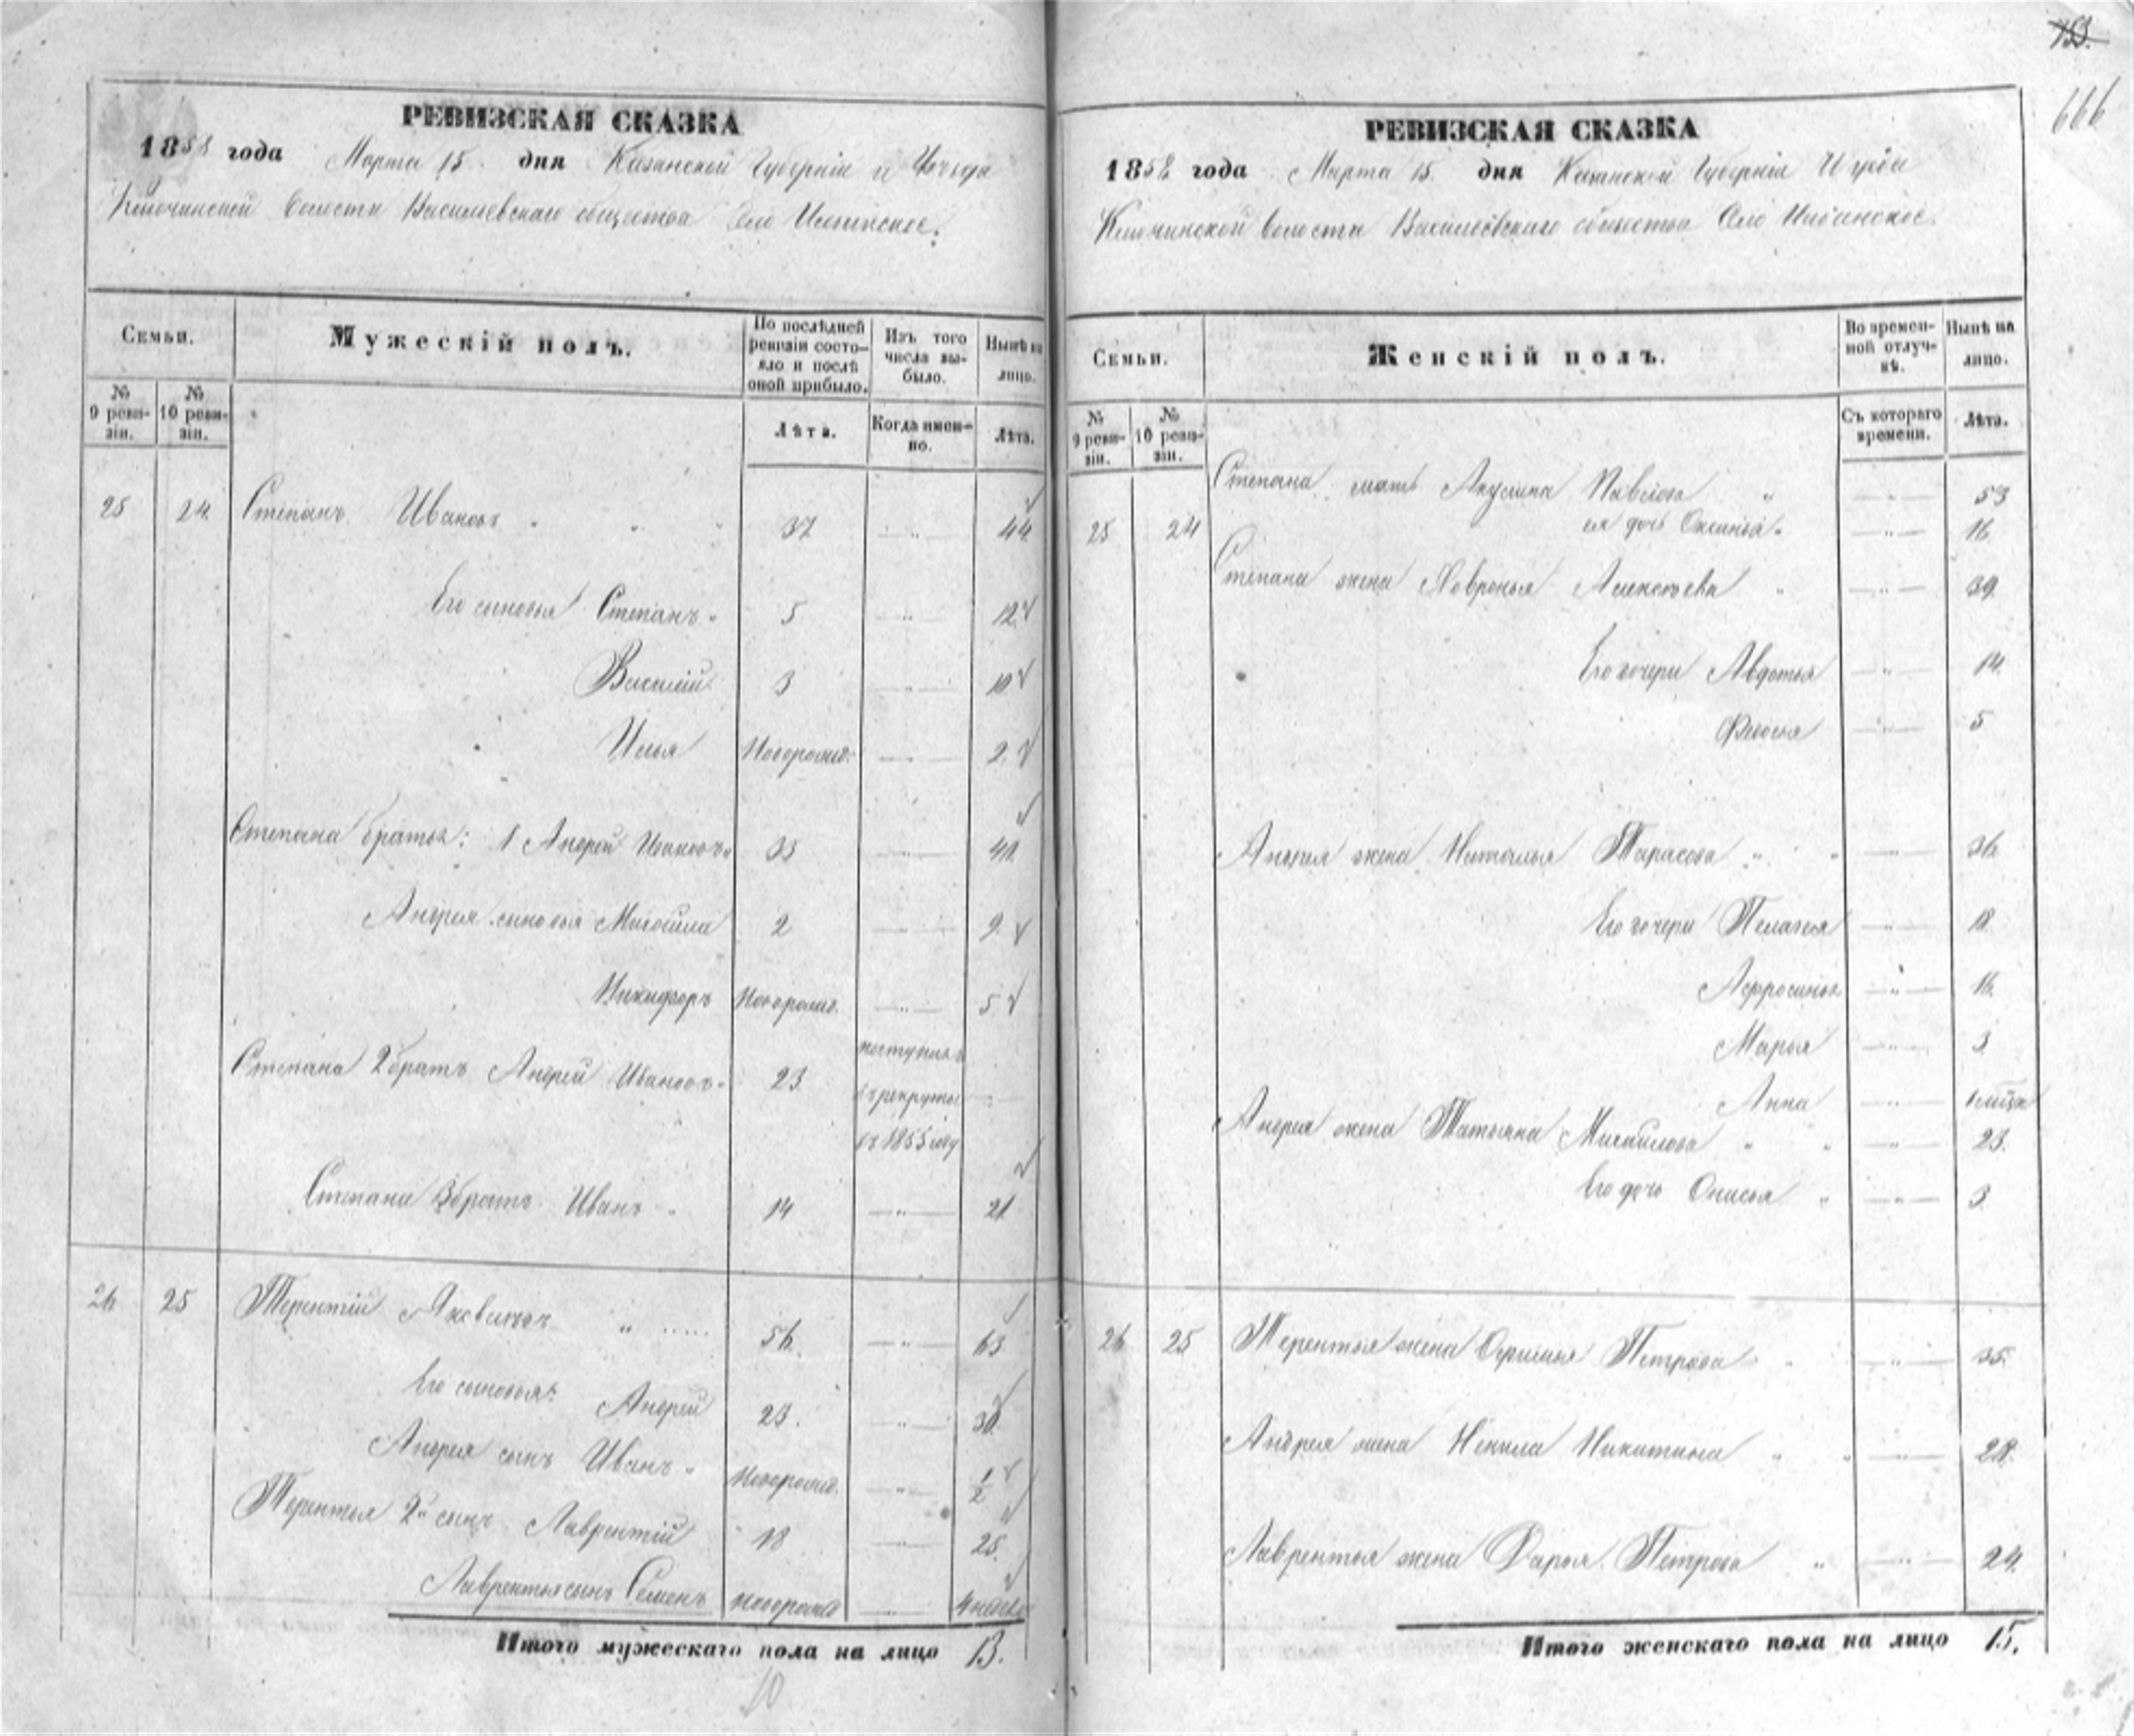 РЕВИЗСКАЯ СКАЗКА
1858 года Марта 15. дня Казанской Губерніи и Уѣзда
волости Васильевскаго общества Село
Семьи.
Мужескій полъ.
По послѣдней ревизіи состояло и послѣ оной прибыло.
Изъ того числа выбыло.
Нынѣ на лицо.
№ 9 ревизіи.
№ 10 ревизіи.
Лѣта.
Когда именно.
Лѣта.
25 24 Степанъ Ивановъ 37 44
Его сыновья Степанъ 5 12
Василій 3 10
Илья Новорожд. 2
Степана братья: 1 Андрей Ивановъ 33 40
Андрея сыновья Михайла 2 9
Никифоръ Новорожд. 5
Степана 2 братъ Андрей Ивановъ 23 поступилъ въ рекруты въ 1855 году
Степана 3 братъ Иванъ 14 21
26 25 Терентій 56 63
Его сыновья: Андрей 23. 30
Андрея сынъ Иванъ Новорожд. 1/2
Терентья 2й сынъ Лаврентій 18 25
Лаврентья сынъ Семенъ новорожд
Итого мужескаго пола на лицо 13.
10
666
РЕВИЗСКАЯ СКАЗКА
1858 года Марта 15. дня Казанской Губерніи
волости Васильевскаго общества Село
Семьи.
Женскій полъ.
Во временной отлучкѣ.
Нынѣ на лицо.
№ 9 ревизіи.
№ 10 ревизіи.
Съ котораго времени.
Лѣта.
Степана мать Акулина Павлова 53
25 24 ея дочь Оксинья 16
Степана жена Ховронья Алексѣева 39
Его дочери Авдотья 14
5
Андрея жена Наталья Тарасова 36
Его дочери Пелагея 18
Афросинья 16
Марья 3
Анна
Андрея жена Татьяна Михайлова 23.
Его дочь Онисья 3
26 25 Терентья жена Петрова 35.
Андрея жена Ненила Никитина 28.
Лаврентья жена Дарья Петрова 24.
Итого женскаго пола на лицо 15.